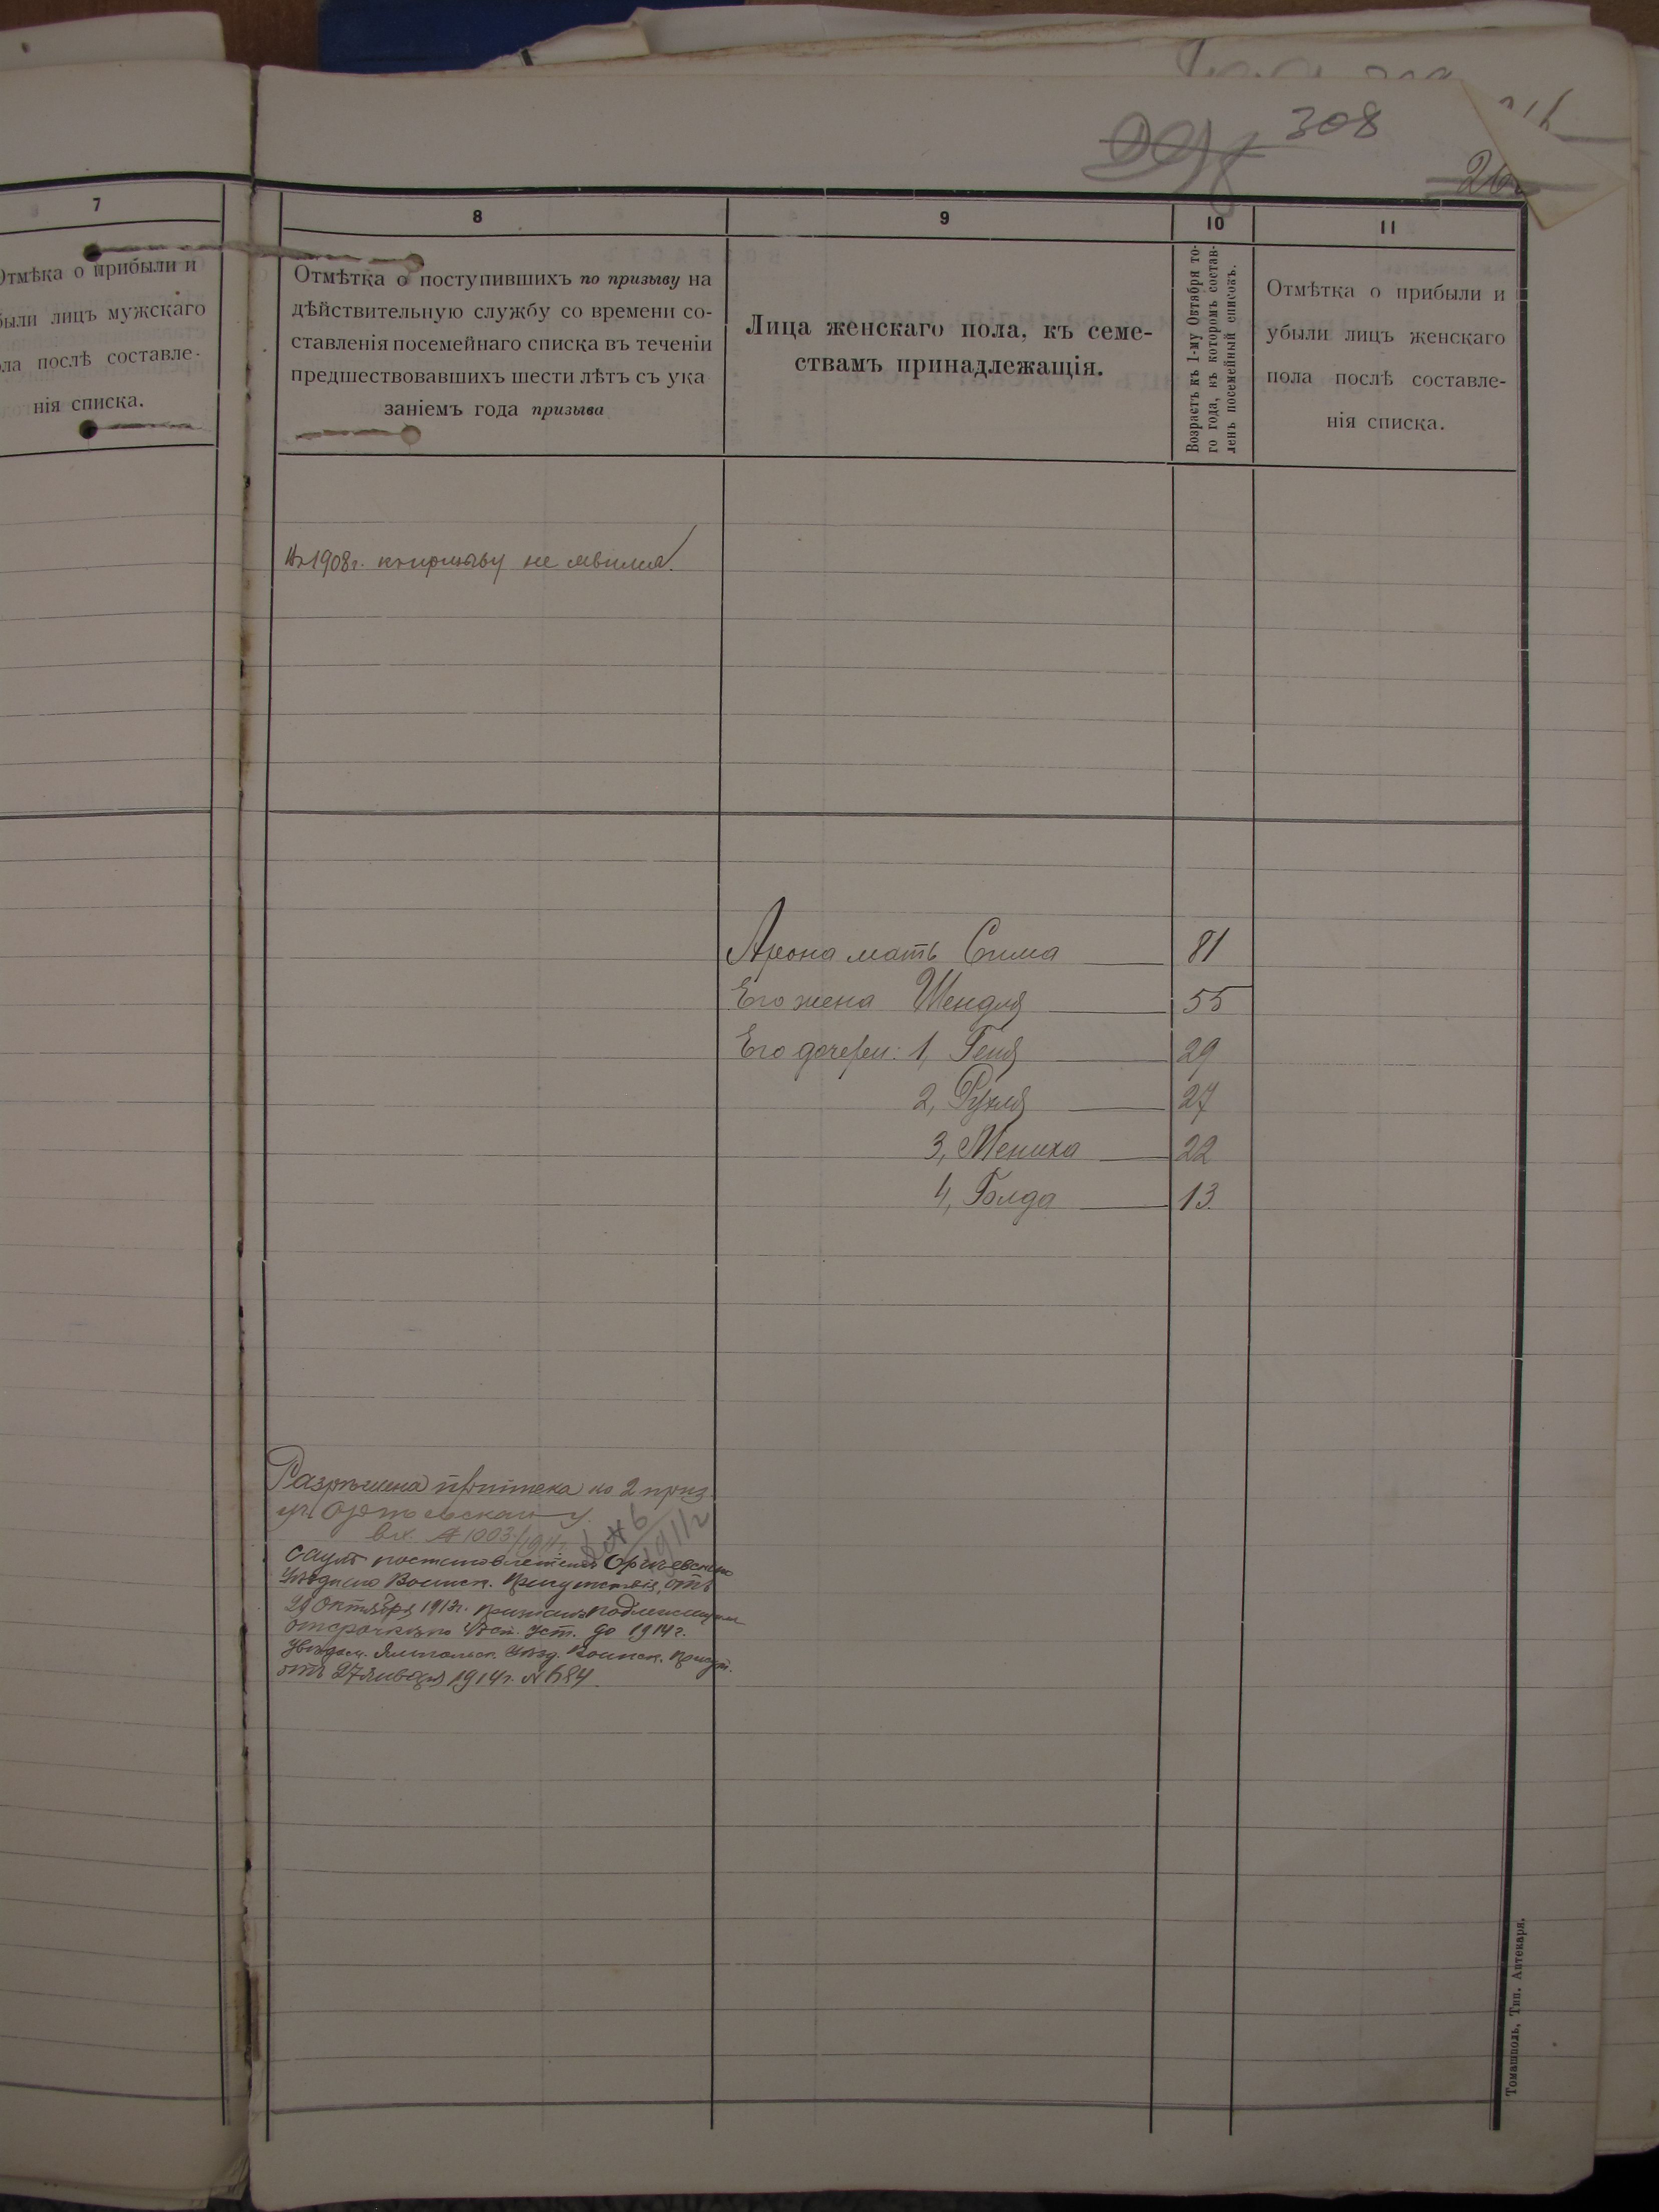 308
7
Отмѣка о прибыли и
были лицъ мужскаго
ола послѣ составле-
нія списка.
8
Отмѣтка о поступившихъ по призыву на
дѣйствительную службу со времени со-
ставленія посемейнаго списка въ теченіи
предшествовавшихъ шести лѣтъ съ ука
заніемъ года призыва
9
Лица женскаго пола, къ семе-
ствамъ принадлежащія.
10
Возрастъ къ 1-му Октября то-
го года, къ которомъ состав-
ленъ посемейный списокъ.
11
Отмѣтка о прибыли и
убыли лицъ женскаго
пола послѣ составле-
нія списка.
Въ 1908г. къ призыву не явился.
Арона мать Сима 81
Его жена Шендля 55
Его дочери: 1, Геня 29
2, Рухля 27
3, Мениха 22
4, Голда 13.
Разрѣшена приписка ко 2 приз.
уч. Оргѣевскаго у.
вх. № 1003/1911г.
1911г
Сауль постановленіемъ Оргѣевскаго
Уѣзднаго Воинск. Присутствія, отъ
Октября 1913г. признанъ подлежащимъ
отсрочкѣ по Уст. до 1914г.
Увѣдом. Ямпольск. Уѣзд. Воинск. Присут.
отъ 27 января 1914г. № 684.
Томашполь, Тип. Аптекаря.